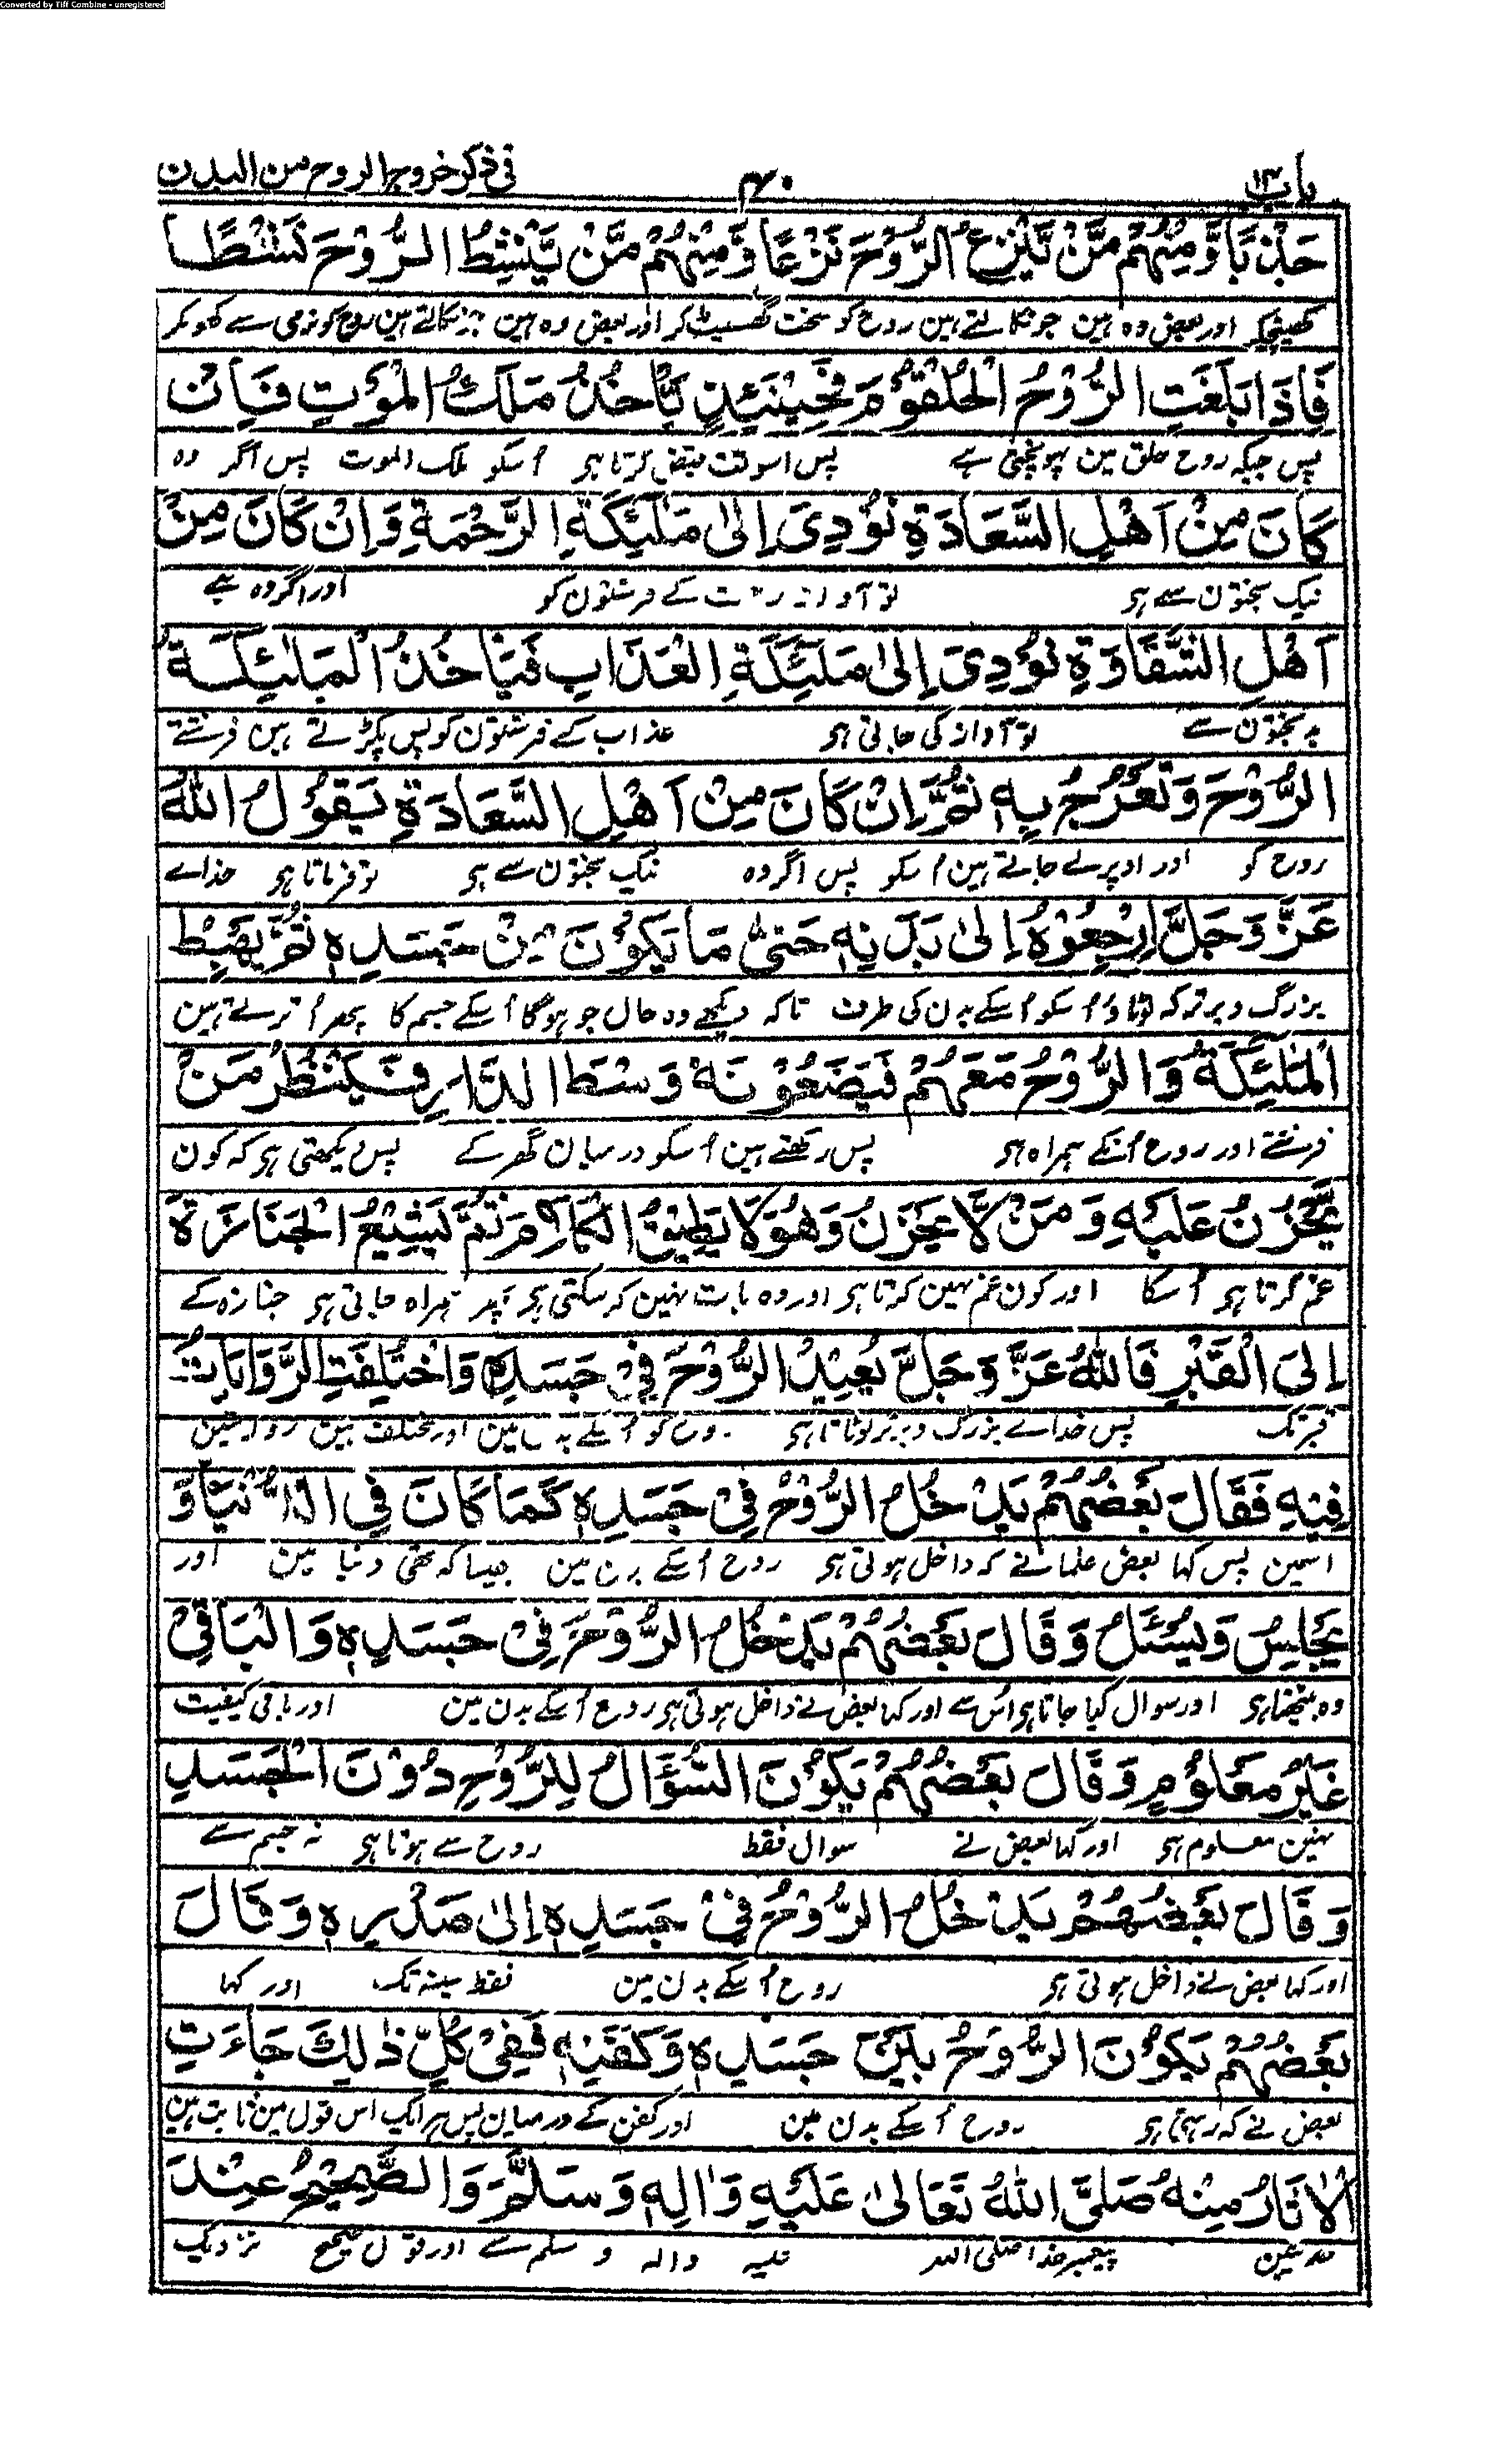 Converted by Tiff Combine - unregistered
باب ۱۳
۴۰
فی ذکر خروج الروح من البدن
جَذْبًا وَّمِنْهُمْ مَّنْ يَّنْزِعُ الرُّوْحَ نَزْعًا وَّمِنْهُمْ مَّنْ يَّنْشِطُ الرُّوْحَ نَشْطًا
کھینچکر اور بعض وہ ہین جو نکالتے ہین روح کو سخت گھسیٹ کر اور بعض وہ ہین جو نکالتے ہین روح کو نرمی سے کھولکر
فَاِذَا بَلَغَتِ الرُّوْحُ الْحُلْقُوْمَ فَحِيْنَئِذٍ يَّأْخُذُ مَلَكُ الْمَوْتِ فَاِنْ
پس جبکہ روح حلق مین پہونچتی ہے پس اسوقت قبض کرتا ہی اُسکو ملک الموت پس اگر وہ
كَانَ مِنْ اَهْلِ السَّعَادَةِ نُوْدِيَ اِلٰى مَلٰٓئِكَةِ الرَّحْمَةِ وَاِنْ كَانَ مِنْ
نیک بختون سے ہی تو آواز رحمت کے فرشتون کو اور اگر وہ ہے
اَهْلِ الشَّقَاوَةِ نُوْدِيَ اِلٰى مَلٰٓئِكَةِ الْعَذَابِ فَيَأْخُذُ الْمَلٰٓئِكَةُ
بد بختون سے تو آواز کی جاتی ہی عذاب کے فرشتون کو پس پکڑتے ہین فرشتے
الرُّوْحَ وَتَعْرُجُ بِهٖ ثُمَّ اِنْ كَانَ مِنْ اَهْلِ السَّعَادَةِ يَقُوْلُ اللّٰهُ
روح کو اور اوپر لے جاتے ہین اُسکو پس اگر وہ نیک بختون سے ہی تو فرماتا ہی خداے
عَزَّ وَجَلَّ اِرْجِعُوْهُ اِلٰى بَدَنِهٖ حَتّٰى مَا يَكُوْنَ مِنْ جَسَدِهٖ ثُمَّ يَهْبِطُ
بزرگ و برتر کہ لوٹاؤ اُسکو اُسکے بدن کی طرف تاکہ دیکھے وہ حال جو ہوگا اُسکے جسم کا پھر اُترتے ہین
الْمَلٰٓئِكَةُ وَالرُّوْحُ مَعَهُمْ فَيَضَعُوْنَهٗ وَسْطَ الدَّارِ فَيَنْظُرُ مَنْ
فرشتے اور روح اُنکے ہمراہ ہی پس رکھتے ہین اُسکو درمیان گھر کے پس دیکھتی ہی کہ کون
يَّحْزُنُ عَلَيْهِ وَمَنْ لَّا يَحْزَنُ وَهُوَ لَا يُطِيْقُ الْكَلَامَ ثُمَّ يَشِيْعُ الْجَنَازَةَ
غم کرتا ہی اُسکا اور کون غم نہین کرتا ہی اور وہ بات نہین کرسکتی ہی پھر ہمراہ جاتی ہی جنازہ کے
اِلَى الْقَبْرِ فَاللّٰهُ عَزَّ وَجَلَّ يُعِيْدُ الرُّوْحَ فِيْ جَسَدِهٖ وَاخْتَلَفَتِ الرِّوَايَاتُ
قبر تک پس خداے بزرگ و برتر لوٹاتا ہی روح کو اُسکے بدن مین اور مختلف ہین روایتین
فِيْهِ فَقَالَ بَعْضُهُمْ يَدْخُلُ الرُّوْحُ فِيْ جَسَدِهٖ كَمَا كَانَ فِي الدُّنْيَا وَ
اسمین پس کہا بعض علما نے کہ داخل ہوتی ہی روح اُسکے بدن مین جیسا کہ تھی دنیا مین اور
يَجْلِسُ وَيُسْئَلُ وَقَالَ بَعْضُهُمْ يَدْخُلُ الرُّوْحُ فِيْ جَسَدِهٖ وَالْبَاقِيْ
وہ بیٹھتا ہی اور سوال کیا جاتا ہی اُس سے اور کہا بعض نے داخل ہوتی ہی روح اُسکے بدن مین اور باقی کیفیت
غَيْرُ مَعْلُوْمٍ وَقَالَ بَعْضُهُمْ يَكُوْنَ السُّؤَالُ لِلرُّوْحِ دُوْنَ الْجَسَدِ
نہین معلوم ہی اور کہا بعض نے سوال فقط روح سے ہوتا ہی نہ جسم سے
وَقَالَ بَعْضُهُمْ يَدْخُلُ الرُّوْحُ فِيْ جَسَدِهٖ اِلٰى صَدْرِهٖ وَقَالَ
اور کہا بعض نے داخل ہوتی ہی روح اُسکے بدن مین فقط سینہ تک اور کہا
بَعْضُهُمْ يَكُوْنَ الرُّوْحُ بَيْنَ جَسَدِهٖ وَكَفَنِهٖ فَفِيْ كُلِّ ذٰلِكَ جَاءَتِ
بعض نے کہ رہتی ہی روح اُسکے بدن مین اور کفن کے درمیان پس ہر ایک اس قول مین ثابت ہین
الْاٰثَارُ مِنْهُ صَلَّى اللّٰهُ تَعَالٰى عَلَيْهِ وَاٰلِهٖ وَسَلَّمَ وَالصَّحِيْحُ عِنْدَ
حدیثین پیمبر خدا صلی اللہ علیہ والہ و سلم سے اور قول صحیح نزدیک